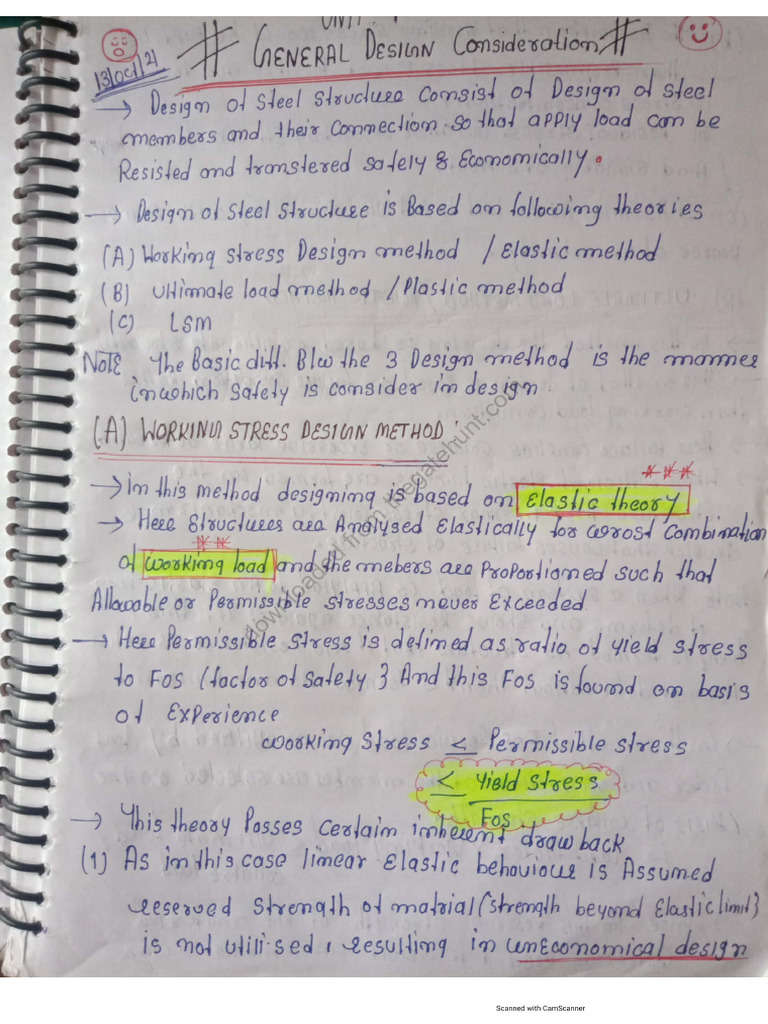 UNIT
13/Oct/21 # GENERAL DESIGN Consideration #
→ Design of Steel Structure Consist of Design of Steel
members and their Connection so that apply load can be
Resisted and transfered Safely & Economically.
→ Design of Steel Structure is Based on following theories
(A) Working stress Design method / Elastic method
(B) Ultimate load method / Plastic method
(C) LSM
NOTE The Basic diff. B/w the 3 Design method is the manner
in which Safety is consider in design.
(A) WORKING STRESS DESIGN METHOD:
→ In this method designing is based on Elastic theory
→ Here Structures are Analysed Elastically for wrost Combination
of working load and the mebers are Proportioned such that
Allowable or Permissible stresses never Exceeded.
→ Here Permissible stress is defined as ratio of yield stress
to FOS (factor of Safety } And this FOS is found on basis
of Experience
working stress ≤ Permissible stress
≤ Yield stress
FOS
→ This theory Posses Certain inherent drawback
(1) As in this case linear Elastic behaviour is Assumed
reserved Strength of matrial (strength beyond Elastic limit}
is not utilised, resulting in unEconomical design
downloaded from thegatehunt.com
Scanned with CamScanner